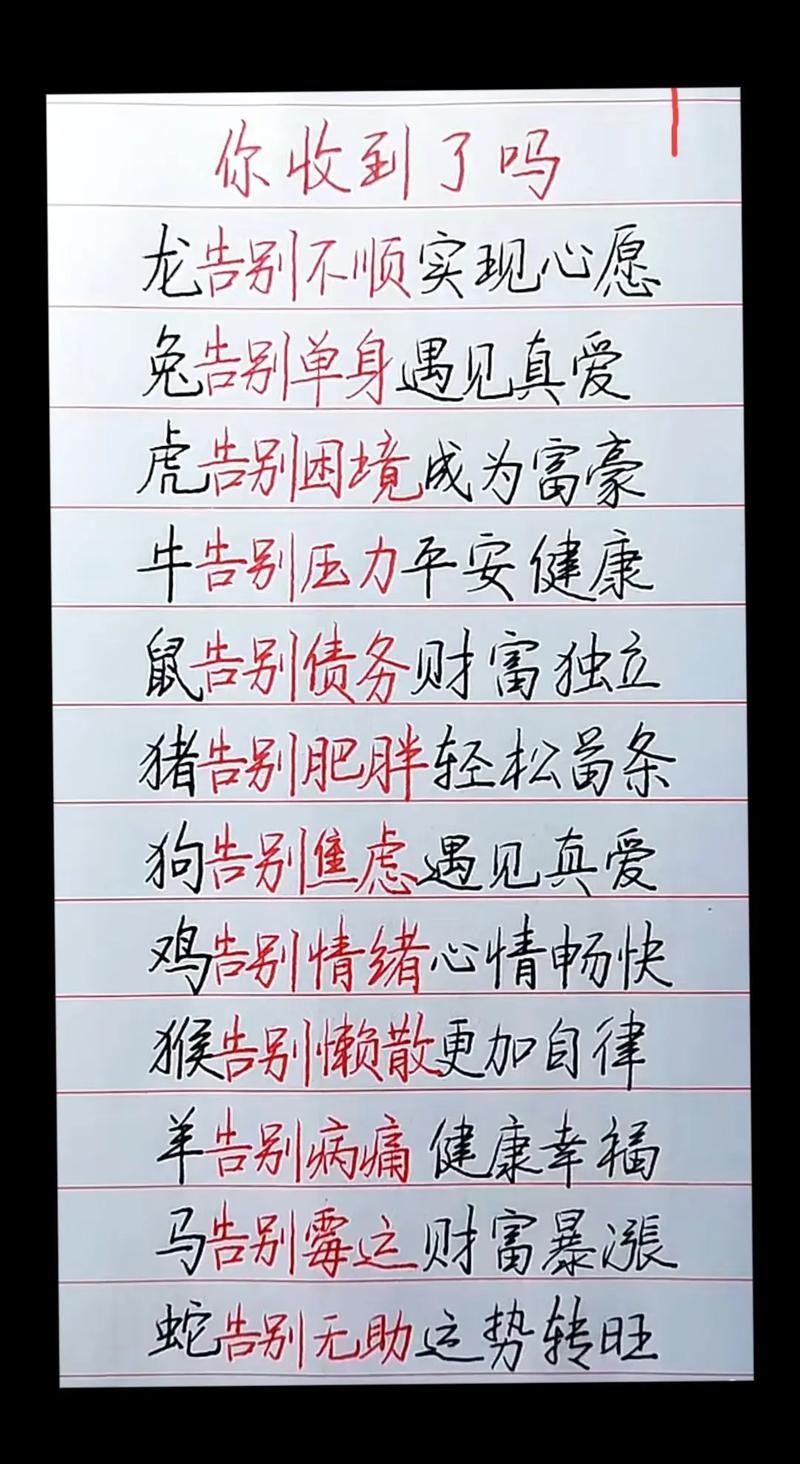 你收到了吗
龙告别不顺实现心愿
兔告别单身遇见真爱
虎告别困境成为富豪
牛告别压力平安健康
鼠告别债务财富独立
猪告别肥胖轻松苗条
狗告别焦虑遇见真爱
鸡告别情绪心情畅快
猴告别懒散更加自律
羊告别病痛健康幸福
马告别霉运财富暴涨
蛇告别无助运势转旺